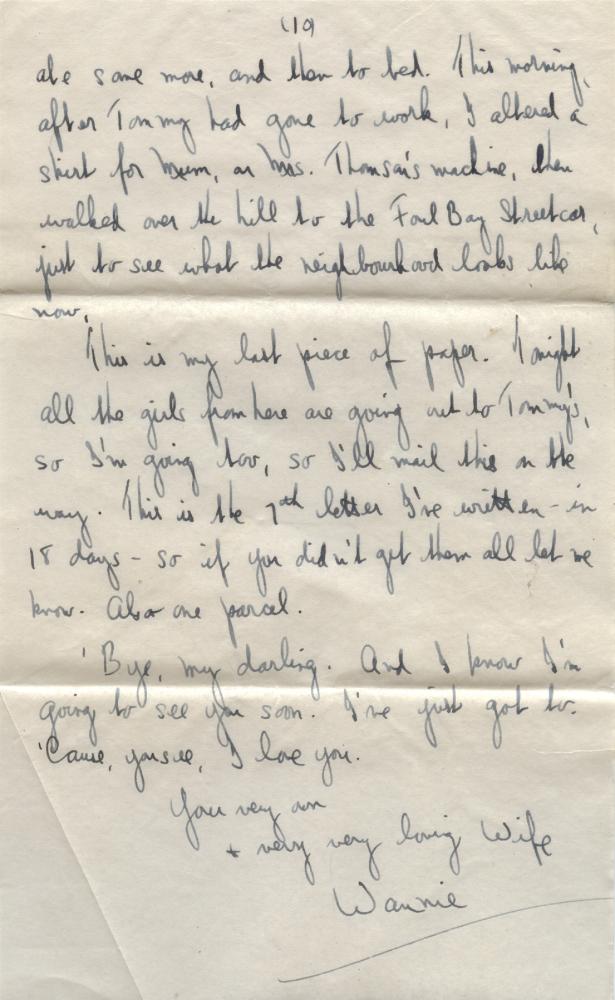 (10)
ate some more, and then to bed. This morning,
after Tommy had gone to work, I altered a
skirt for Mum, on Mrs. Thomson's machine, then
walked over the hill to the Foul Bay Streetcar,
just to see what the neighbourhood looks like
now.
This is my last piece of paper. Tonight
all the girls from here are going out to Tommy's,
so I'm going too, so I'll mail this on the
way. This is the 7th letter I've written - in
18 days - so if you didn't get them all let me
know. Also one parcel.
'Bye, my darling. And I know I'm
going to see you soon. I've just got to.
'Cause, you see, I love you.
Your very own
+ very very loving Wife
Wannie